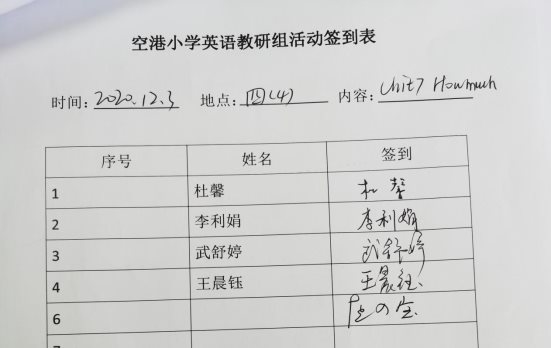 空港小学英语教研组活动签到表
时间: 2020.12.3 地点: 四(4) 内容: Unit7 How much
序号 姓名 签到
1 杜馨 杜馨
2 李利娟 李利娟
3 武舒婷 武舒婷
4 王晨钰 王晨钰
6